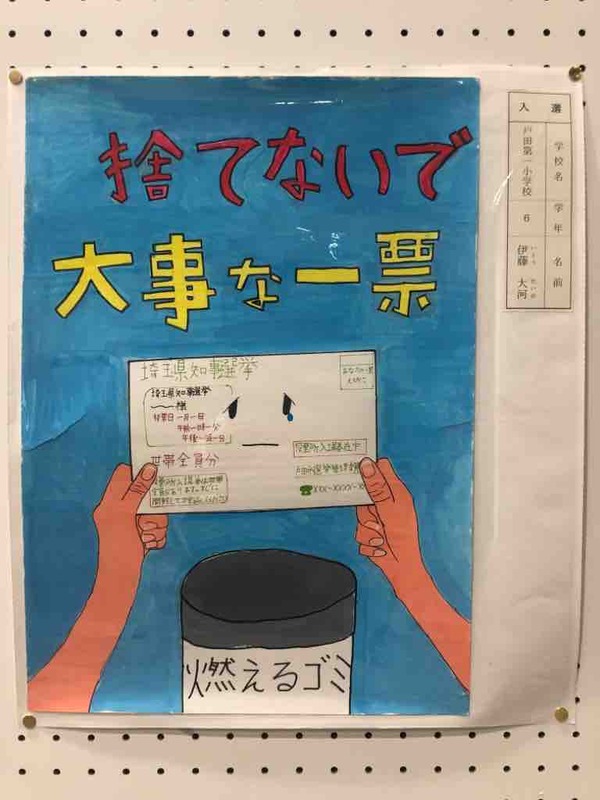 捨てないで
大事な一票
埼玉県知事選挙
埼玉県知事選挙
様
投票日一月一日
午前一時一分
午後一
世帯全員分
投票所入場券在中
☎XXX-XXXX-X
燃えるゴミ
入選
学校名 戸田第一小学校
学年 6
名前 伊藤 大河